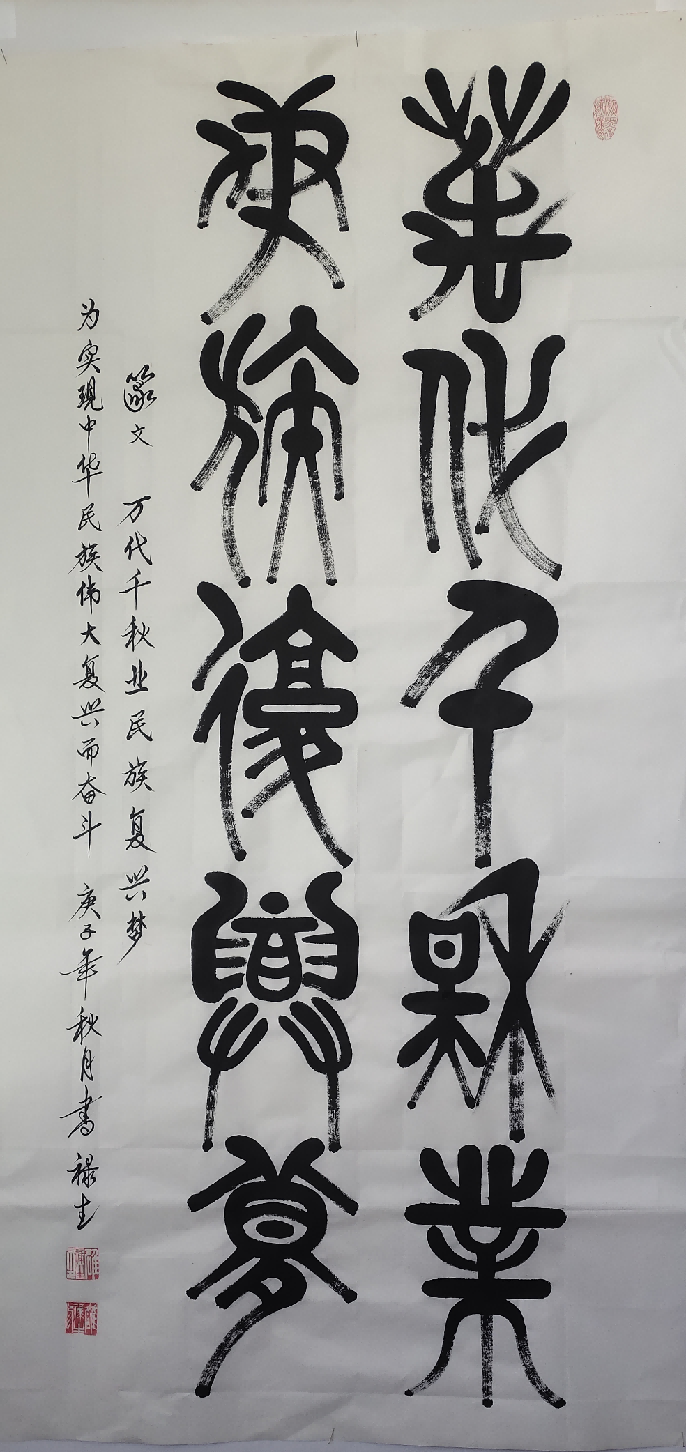 萬代千秋業
民族復興夢
篆文 万代千秋业民族复兴梦
为实现中华民族伟大复兴而奋斗 庚子年秋月书 禄生